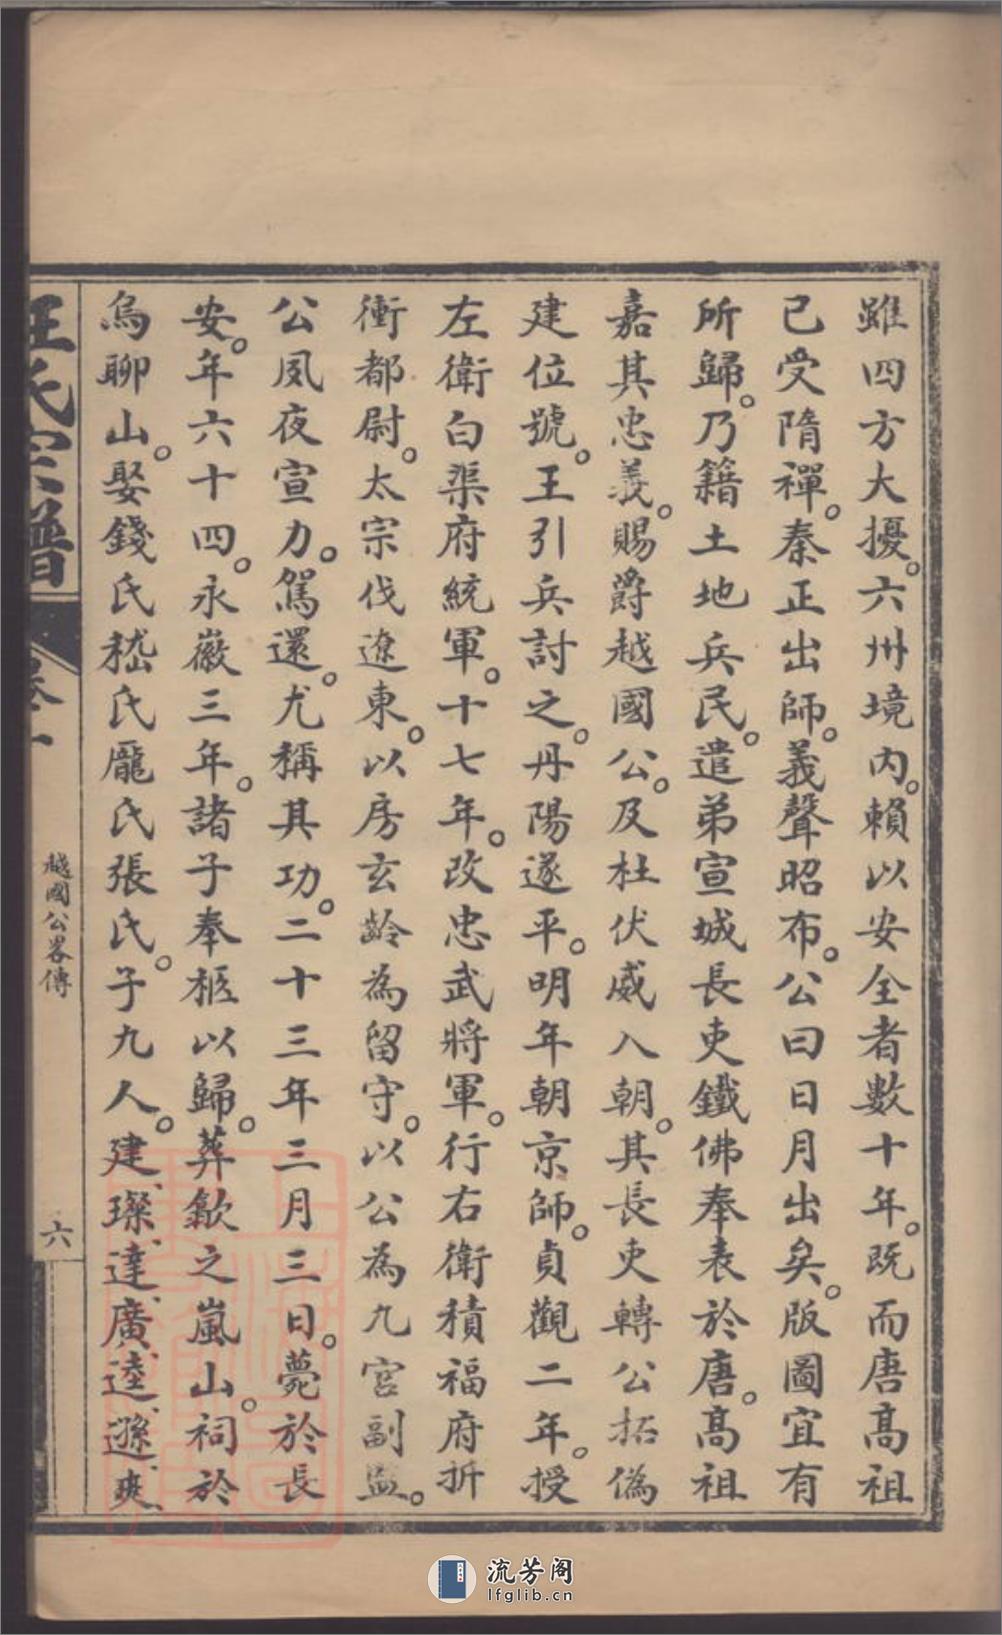 雖四方大擾。六州境內。賴以安全者數十年。既而唐高祖
已受隋禪。秦正出師。義聲昭布。公曰日月出矣。版圖宜有
所歸。乃籍土地兵民。遣弟宣城長吏鐵佛奉表於唐。高祖
嘉其忠義。賜爵越國公。及杜伏威入朝。其長吏轉公拓偽
建位號。王引兵討之。丹陽遂平。明年朝京師。貞觀二年。授
左衛白渠府統軍。十七年。改忠武將軍。行右衛積福府折
衝都尉。太宗伐遼東。以房玄齡為留守。以公為九宮副監。
公夙夜宣力。駕還。尤稱其功。二十三年三月三日。薨於長
安。年六十四。永徽三年。諸子奉柩以歸。葬歙之嵐山。祠於
烏聊山。娶錢氏嵇氏龐氏張氏。子九人。建、璨、達、廣、逵、遜、爽、
汪氏宗譜
卷一
越國公畧傳
六
流芳阁
lfglib.cn